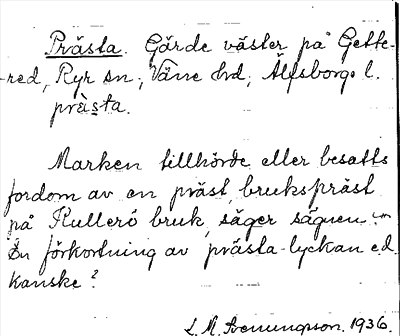 Prästa. Gärde väster på Gette-
red, Ryr sn, Väne hd, Älfsborgs l.
prästa.
Marken tillhörde eller besatts
fordom av en präst, brukspräst
på Kullerö bruk, säger sägnen.
En förkortning av prästa-lyckan e.d.
kanske?
L. M. Svenungsson. 1936.